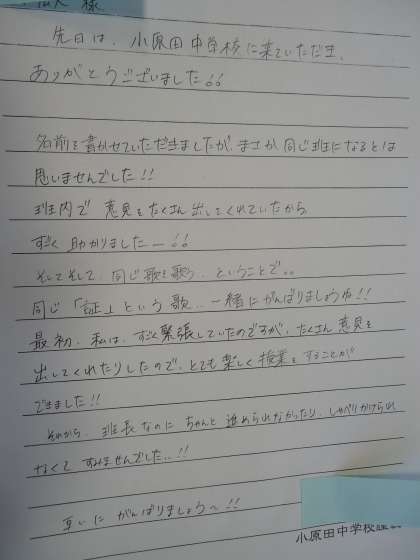 様
先日は、小原田中学校に来ていただき、
ありがとうございました!!
名前を書かせていただきましたが、まさか同じ班になるとは
思いませんでした!!
班内で 意見をたくさん出してくれていたから
すごく助かりましたー!!
そしてそして、同じ歌を歌う..ということで..
同じ「証」という歌...一緒にがんばりましょうね!!
最初、私は、すごく緊張していたのですが、たくさん意見を
出してくれたりしたので、とても楽しく授業をすることが
できました!!
それから、班長なのに ちゃんと進められなかったり、しゃべりかけられ
なくて すみませんでした..!!
互いに がんばりましょう〜!!
小原田中学校